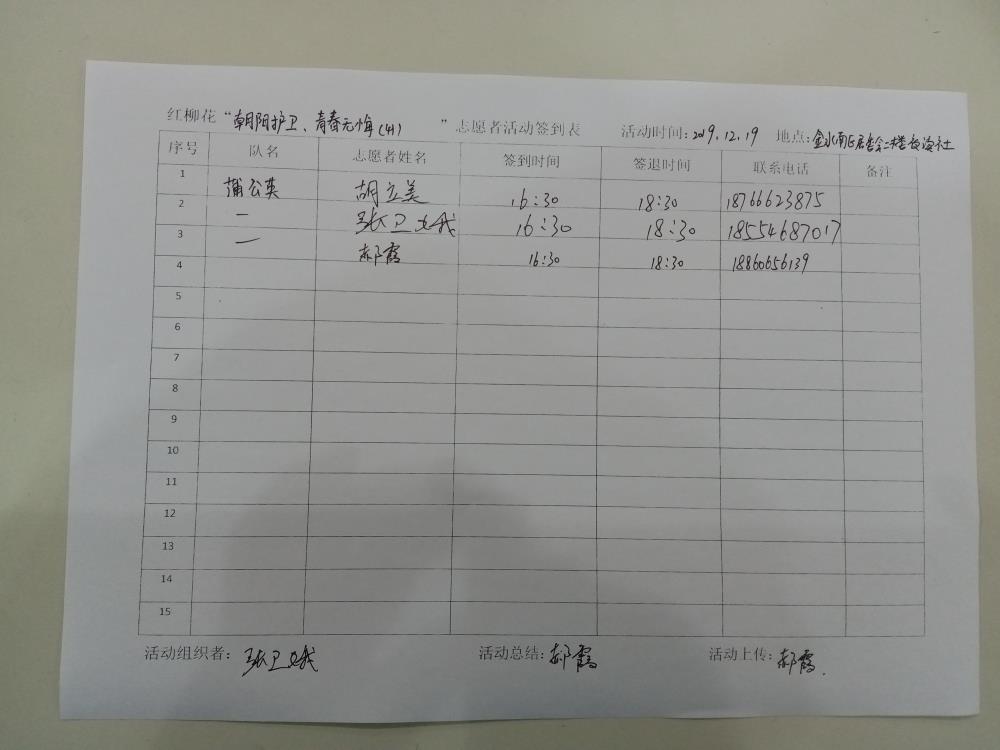 红柳花“朝阳护卫、青春无悔(41) ”志愿者活动签到表 活动时间:2019.12.19 地点:金水南区居委会二楼
序号 队名 志愿者姓名 签到时间 签退时间 联系电话 备注
1 蒲公英 胡立美 16:30 18:30 18766623875
2 — 张卫 16:30 18:30 18554687017
3 — 郝霞 16:30 18:30 18860656139
4
5
6
7
8
9
10
11
12
13
14
15
活动组织者: 张卫 活动总结: 郝霞 活动上传: 郝霞.